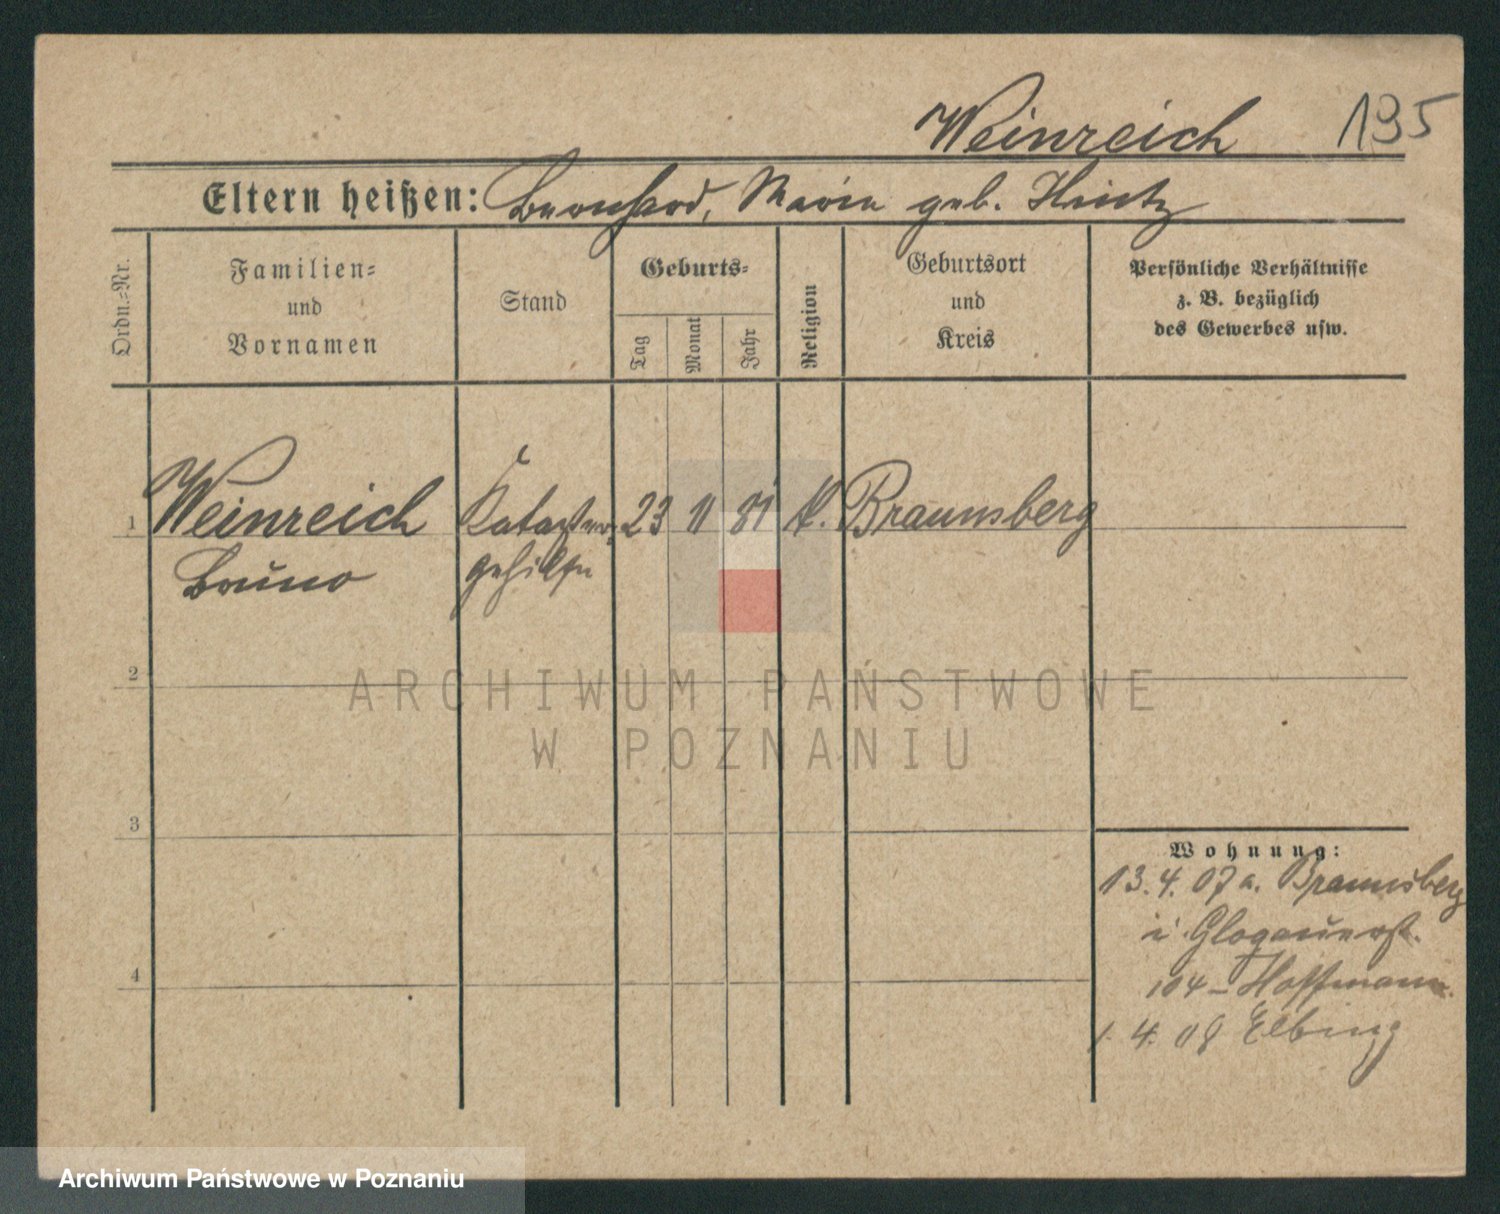 Weinreich 195
Eltern heißen: Bernhard, Maria geb. Hintz
Ordn.=Nr.
Familien=
und
Vornamen
Stand
Geburts=
Tag
Monat
Jahr
Religion
Geburtsort
und
Kreis
Persönliche Verhältnisse
z. B. bezüglich
des Gewerbes usw.
1 Weinreich Kataster= 23 11 81 k. Braunsberg
Bruno gehilfe
2
3
4
Wohnung:
13.4.07 a. Braunsberg
i Glogauerst.
104 – Hoffmann.
1.4.08 Elbing
ARCHIWUM PAŃSTWOWE
W POZNANIU
Archiwum Państwowe w Poznaniu